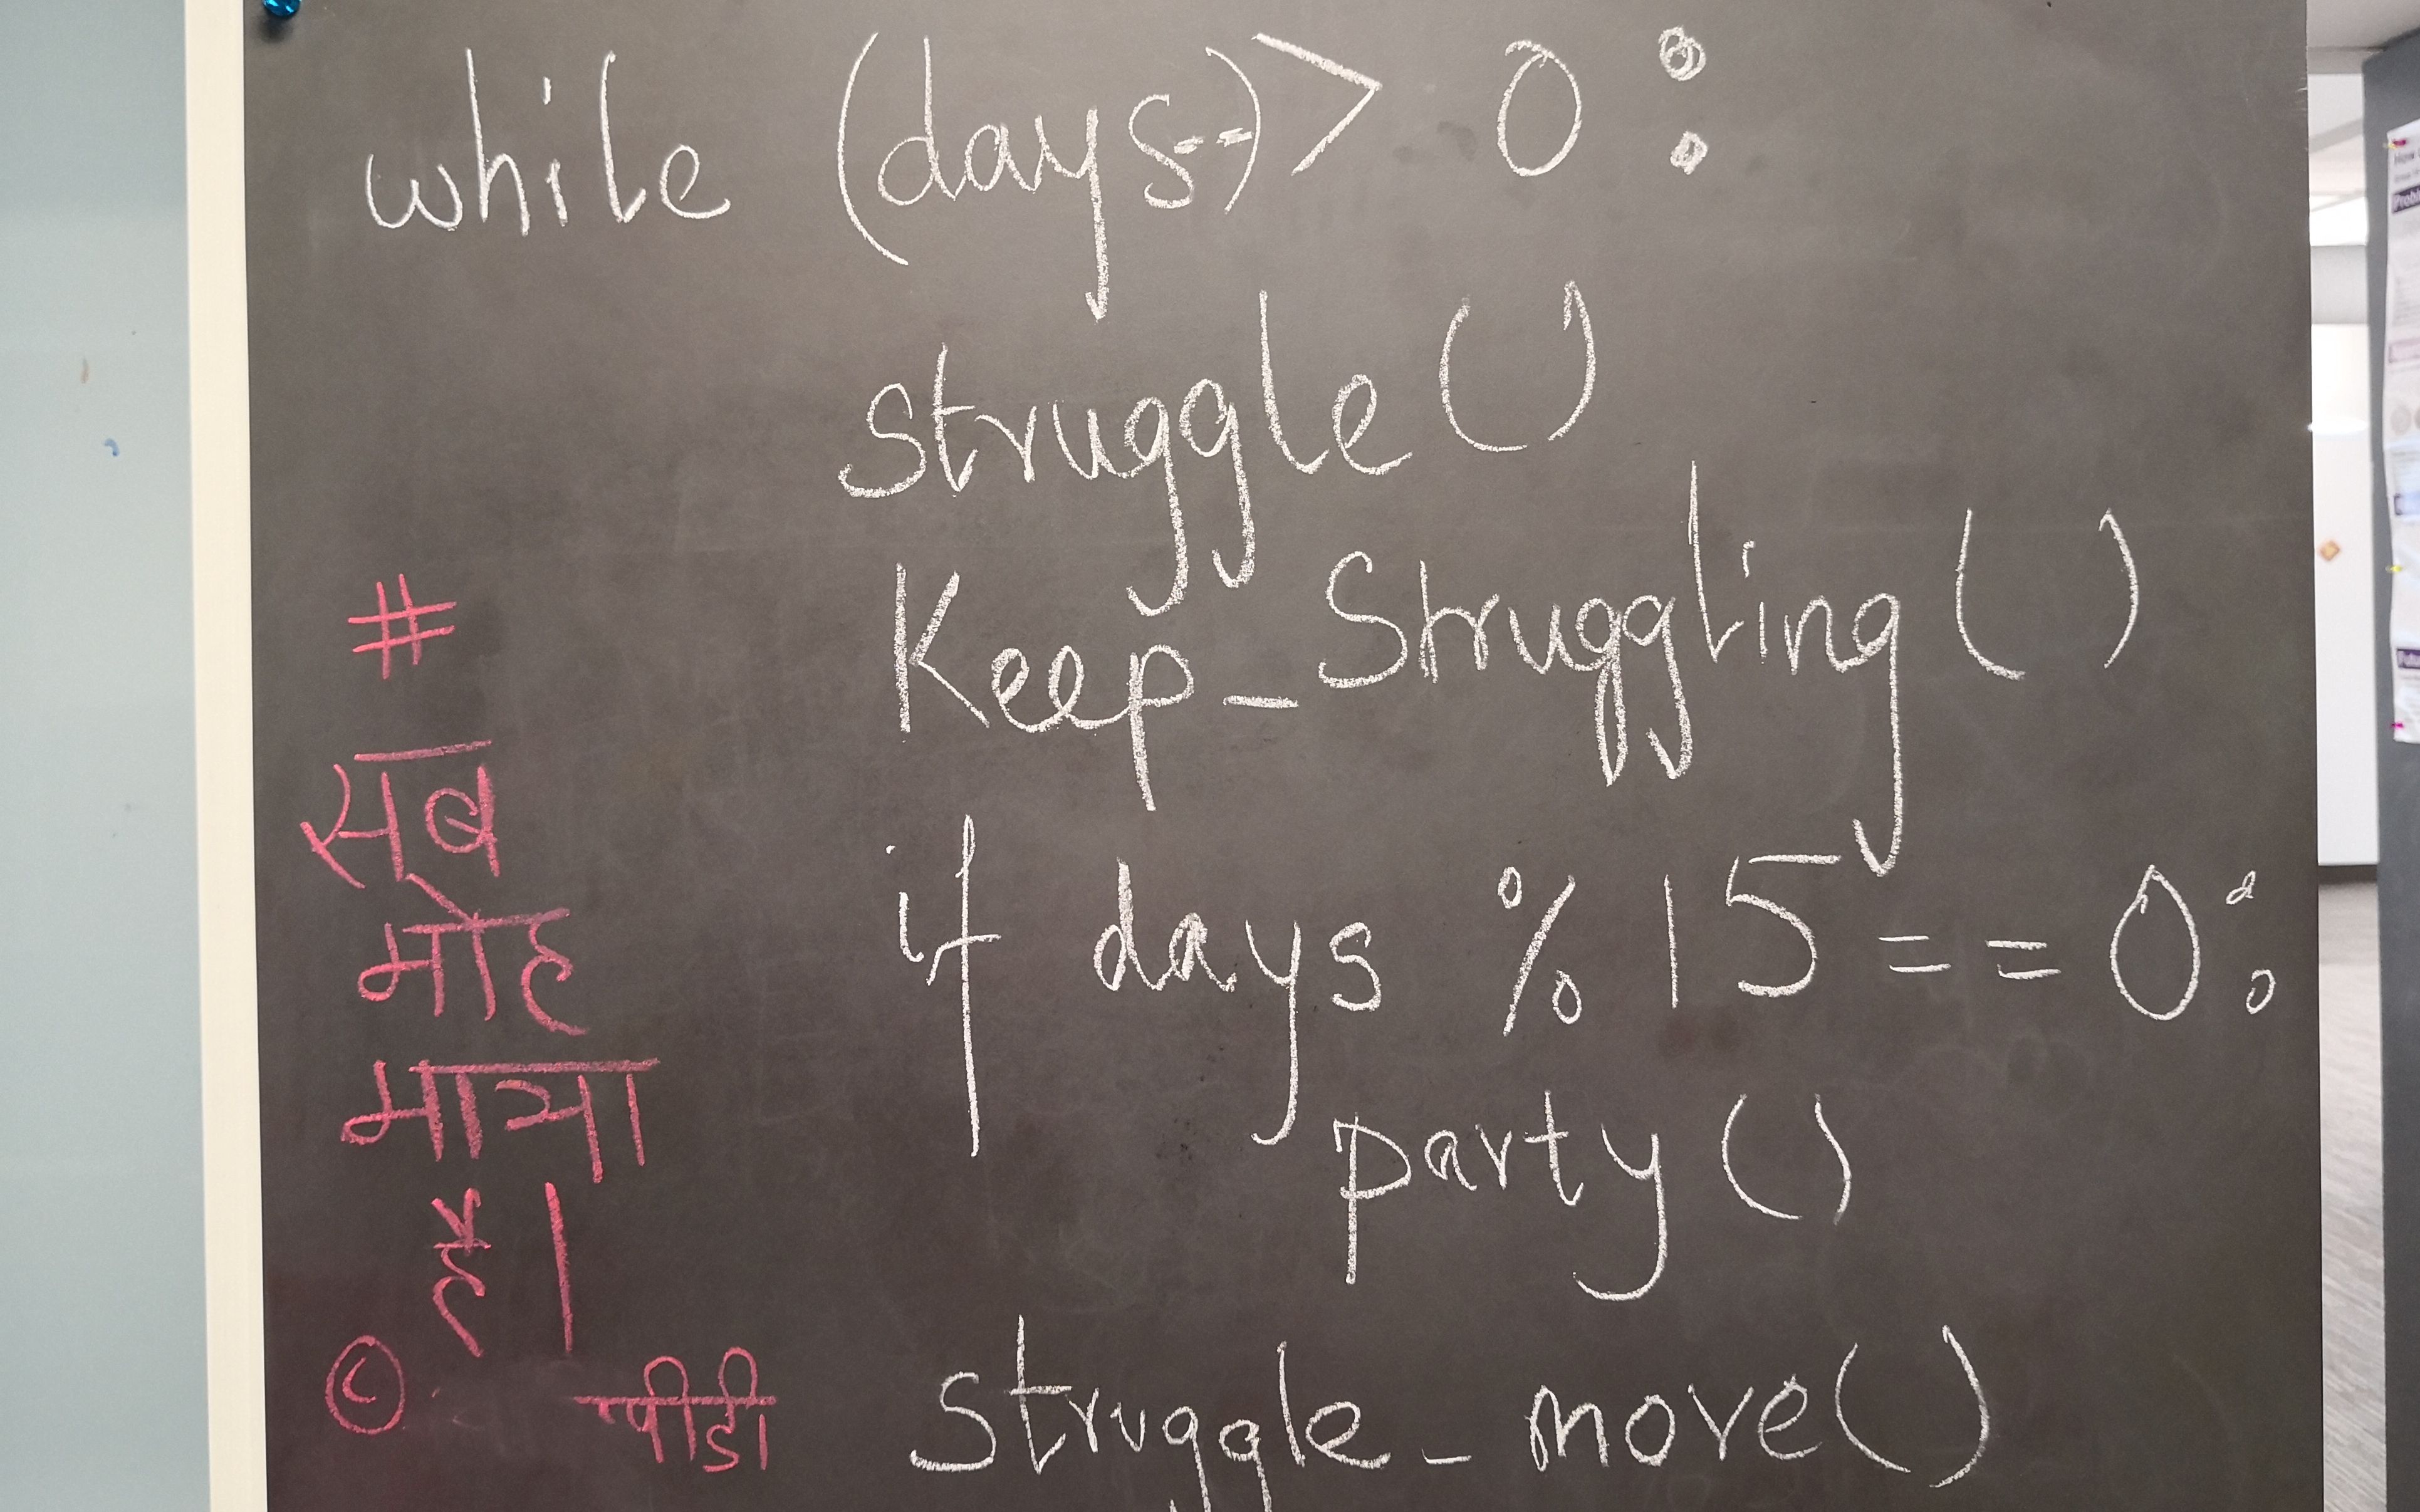 while (days--) > 0 :
struggle ()
Keep_Struggling ( )
if days % 15 == 0 :
party ()
struggle _ move()
#
सब
मोह
माया
है।
© पीडी